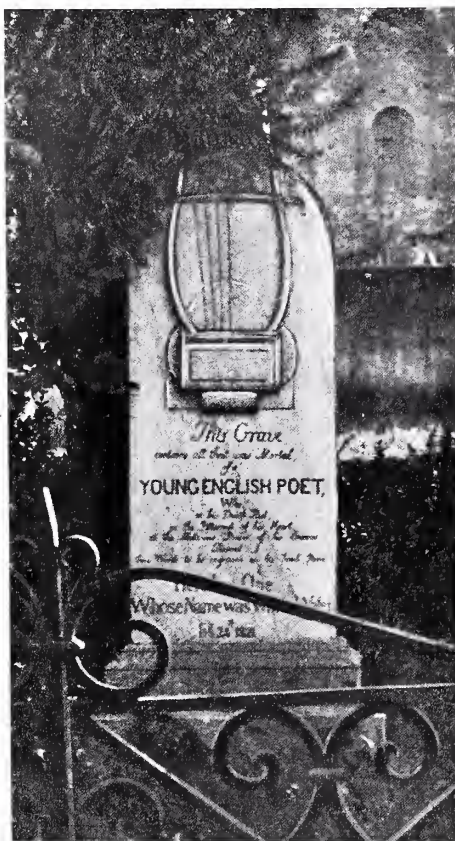 This Grave
contains all that was Mortal,
of a
YOUNG ENGLISH POET,
Who
on his Death Bed
in the Bitterness of his Heart
at the Malicious Power of his Enemies
Desired
these Words to be engraven on his Tomb Stone
Here lies One
Whose Name was Writ in Water
Feb 24th 1821